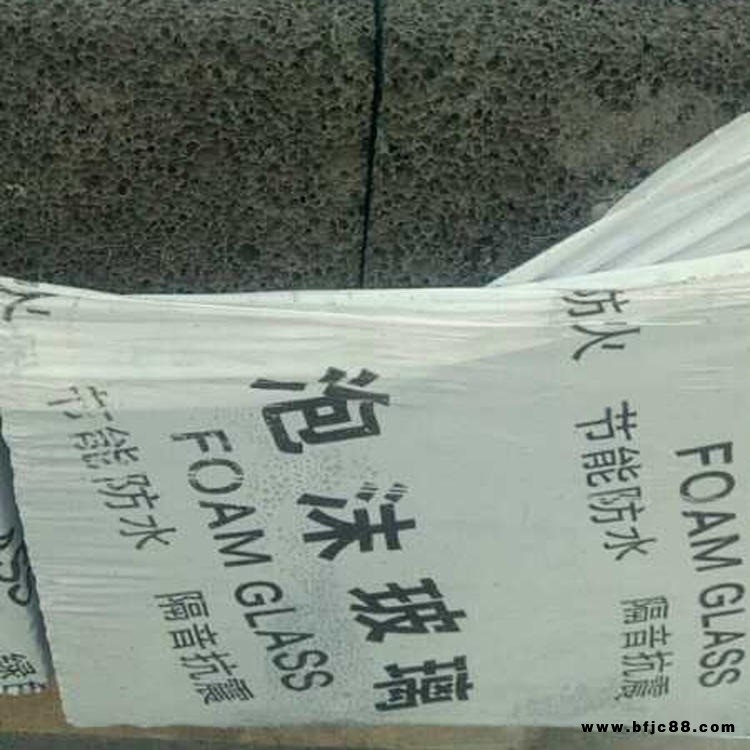 防火
节能防水
FOAM GLASS
隔音抗震
泡沫玻璃
节能防水
FOAM GLASS
隔音抗震
绿色
www.bfjc88.com